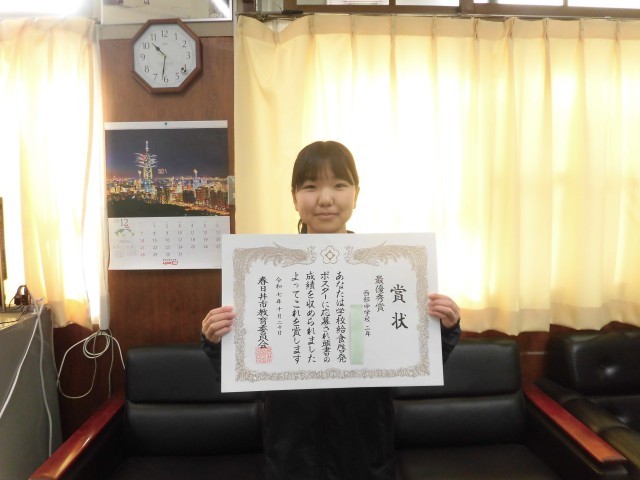 賞状
最優秀賞
西部中学校 二年
あなたは学校給食啓発
ポスターに応募され頭書の
成績を収められました
よってこれを賞します
令和七年十月二十日
春日井市教育委員会
12